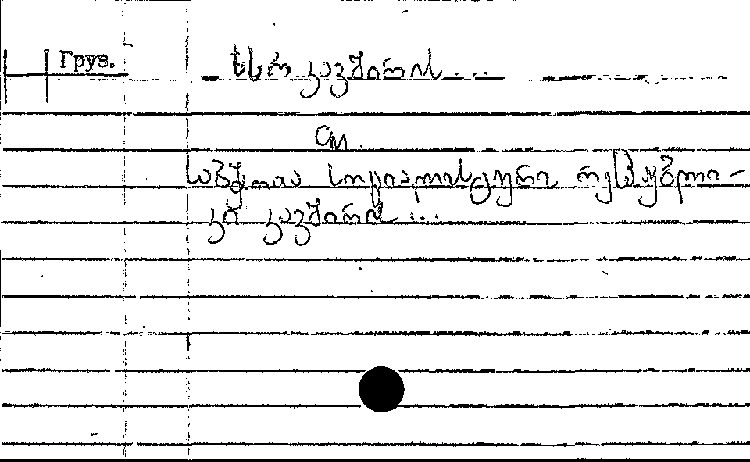 Груз.
სსრ კავშირის...
см.
საბჭოთა სოციალისტური რესპუბლი-
კი კავშირის...